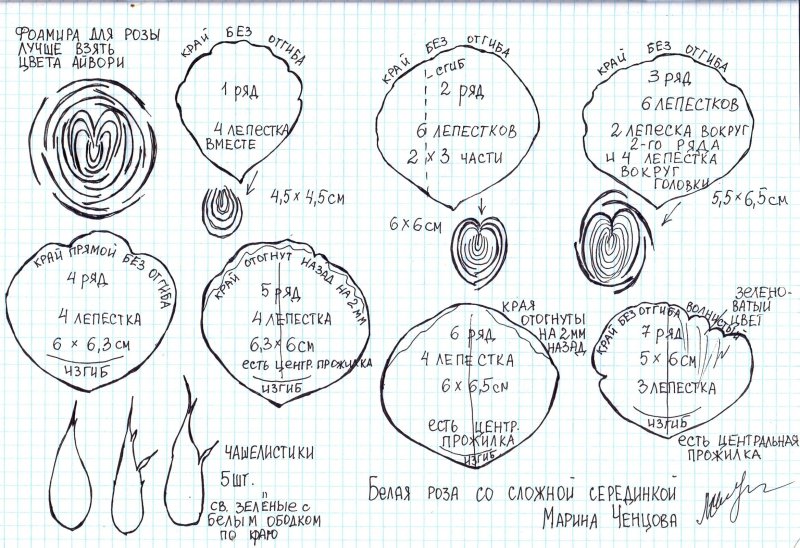 Фоамира для розы
лучше взять
цвета айвори
край без отгиба
1 ряд
4 лепестка
вместе
4,5 × 4,5 см
край без отгиба
сгиб
2 ряд
6 лепестков
2 × 3 части
6 × 6 см
край без отгиба
3 ряд
6 лепестков
2 лепеска вокруг
2-го ряда
и 4 лепестка
вокруг
головки
5,5 × 6,5 см
край прямой без отгиба
4 ряд
4 лепестка
6 × 6,3 см
изгиб
край отогнут назад на 2 мм
5 ряд
4 лепестка
6,3 × 6 см
есть центр. прожилка
изгиб
края
отогнуты
на 2 мм
назад
6 ряд
4 лепестка
6 × 6,5 см
есть центр.
прожилка
изгиб
зелено-
ватый
цвет
край без отгиба волнистый
7 ряд
5 × 6 см
3 лепестка
изгиб
есть центральная
прожилка
чашелистики
5 шт.
св. зелёные с
белым ободком
по краю
Белая роза со сложной серединкой
Марина Ченцова